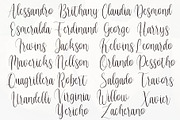 Alessandro Brithany Claudia Desmond
Esmeralda Ferdinand George Harrys
Travins Jackson Kelvins Leonardo
Mavericks Nellson Orlando Dessotho
Cuagrillera Robert Salgado Travors
Urandelli Virginia Willow Xavier
Yericho Zacherano